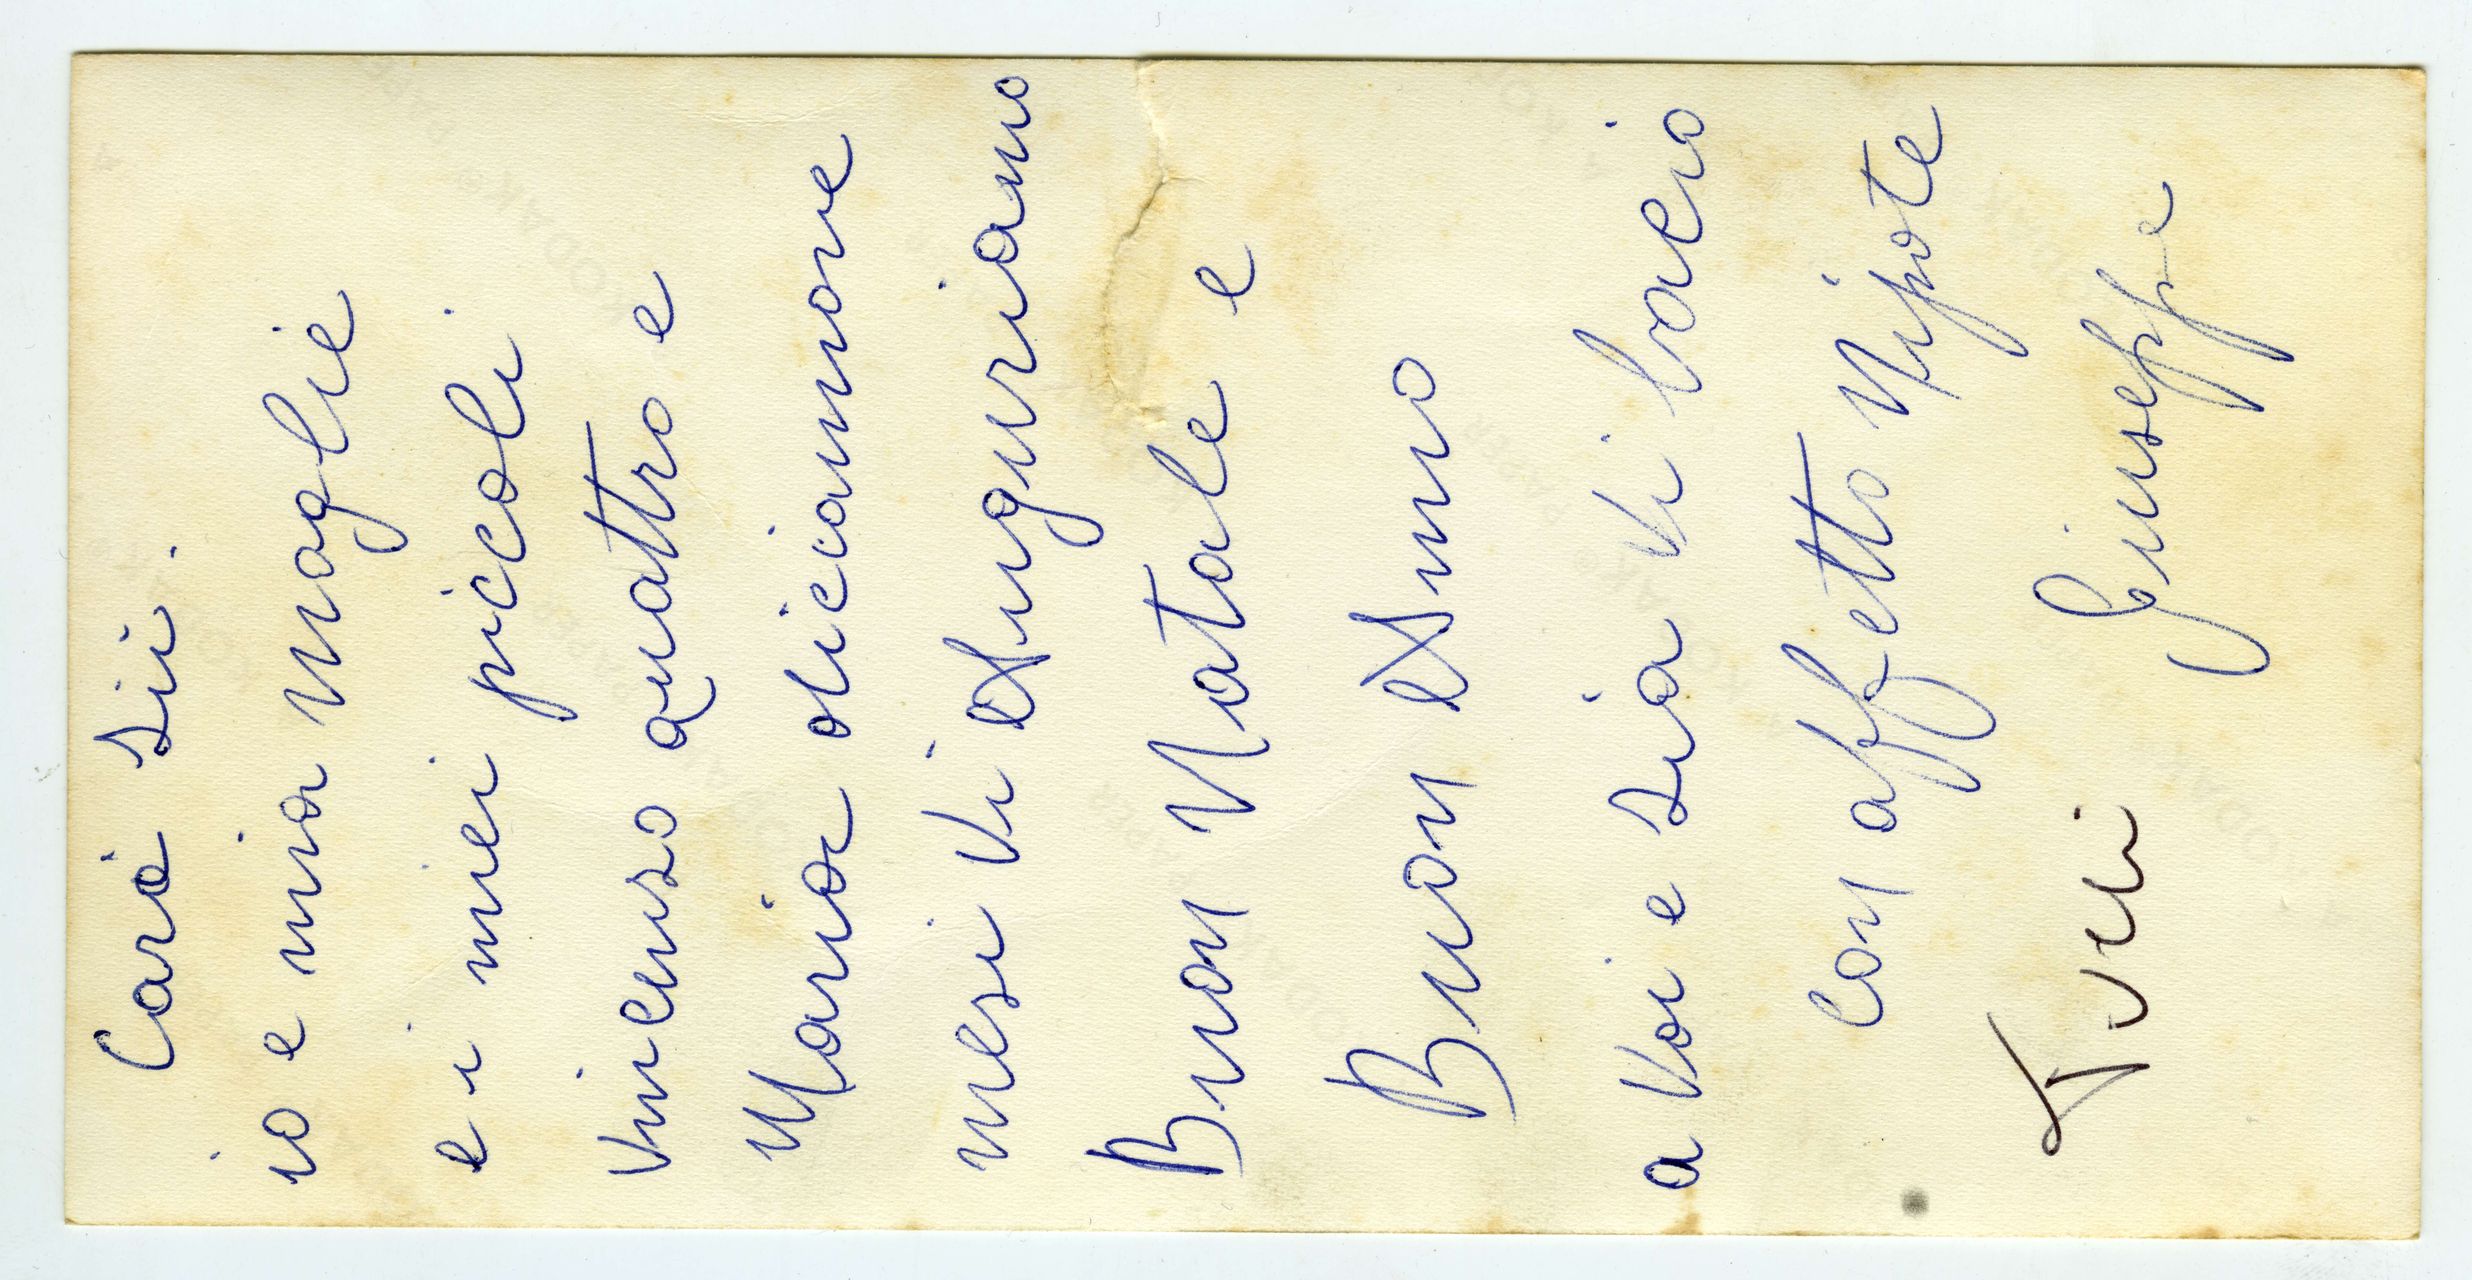 Cari Sii.
io e mia moglie
e i miei piccoli
Vincenso quattro e
Maria diciannove
mesi Vi Auguriamo
Buon Natale e
Buon Anno
a Voi e Sia Vi bacio
con affetto Nipote
Giuseppe